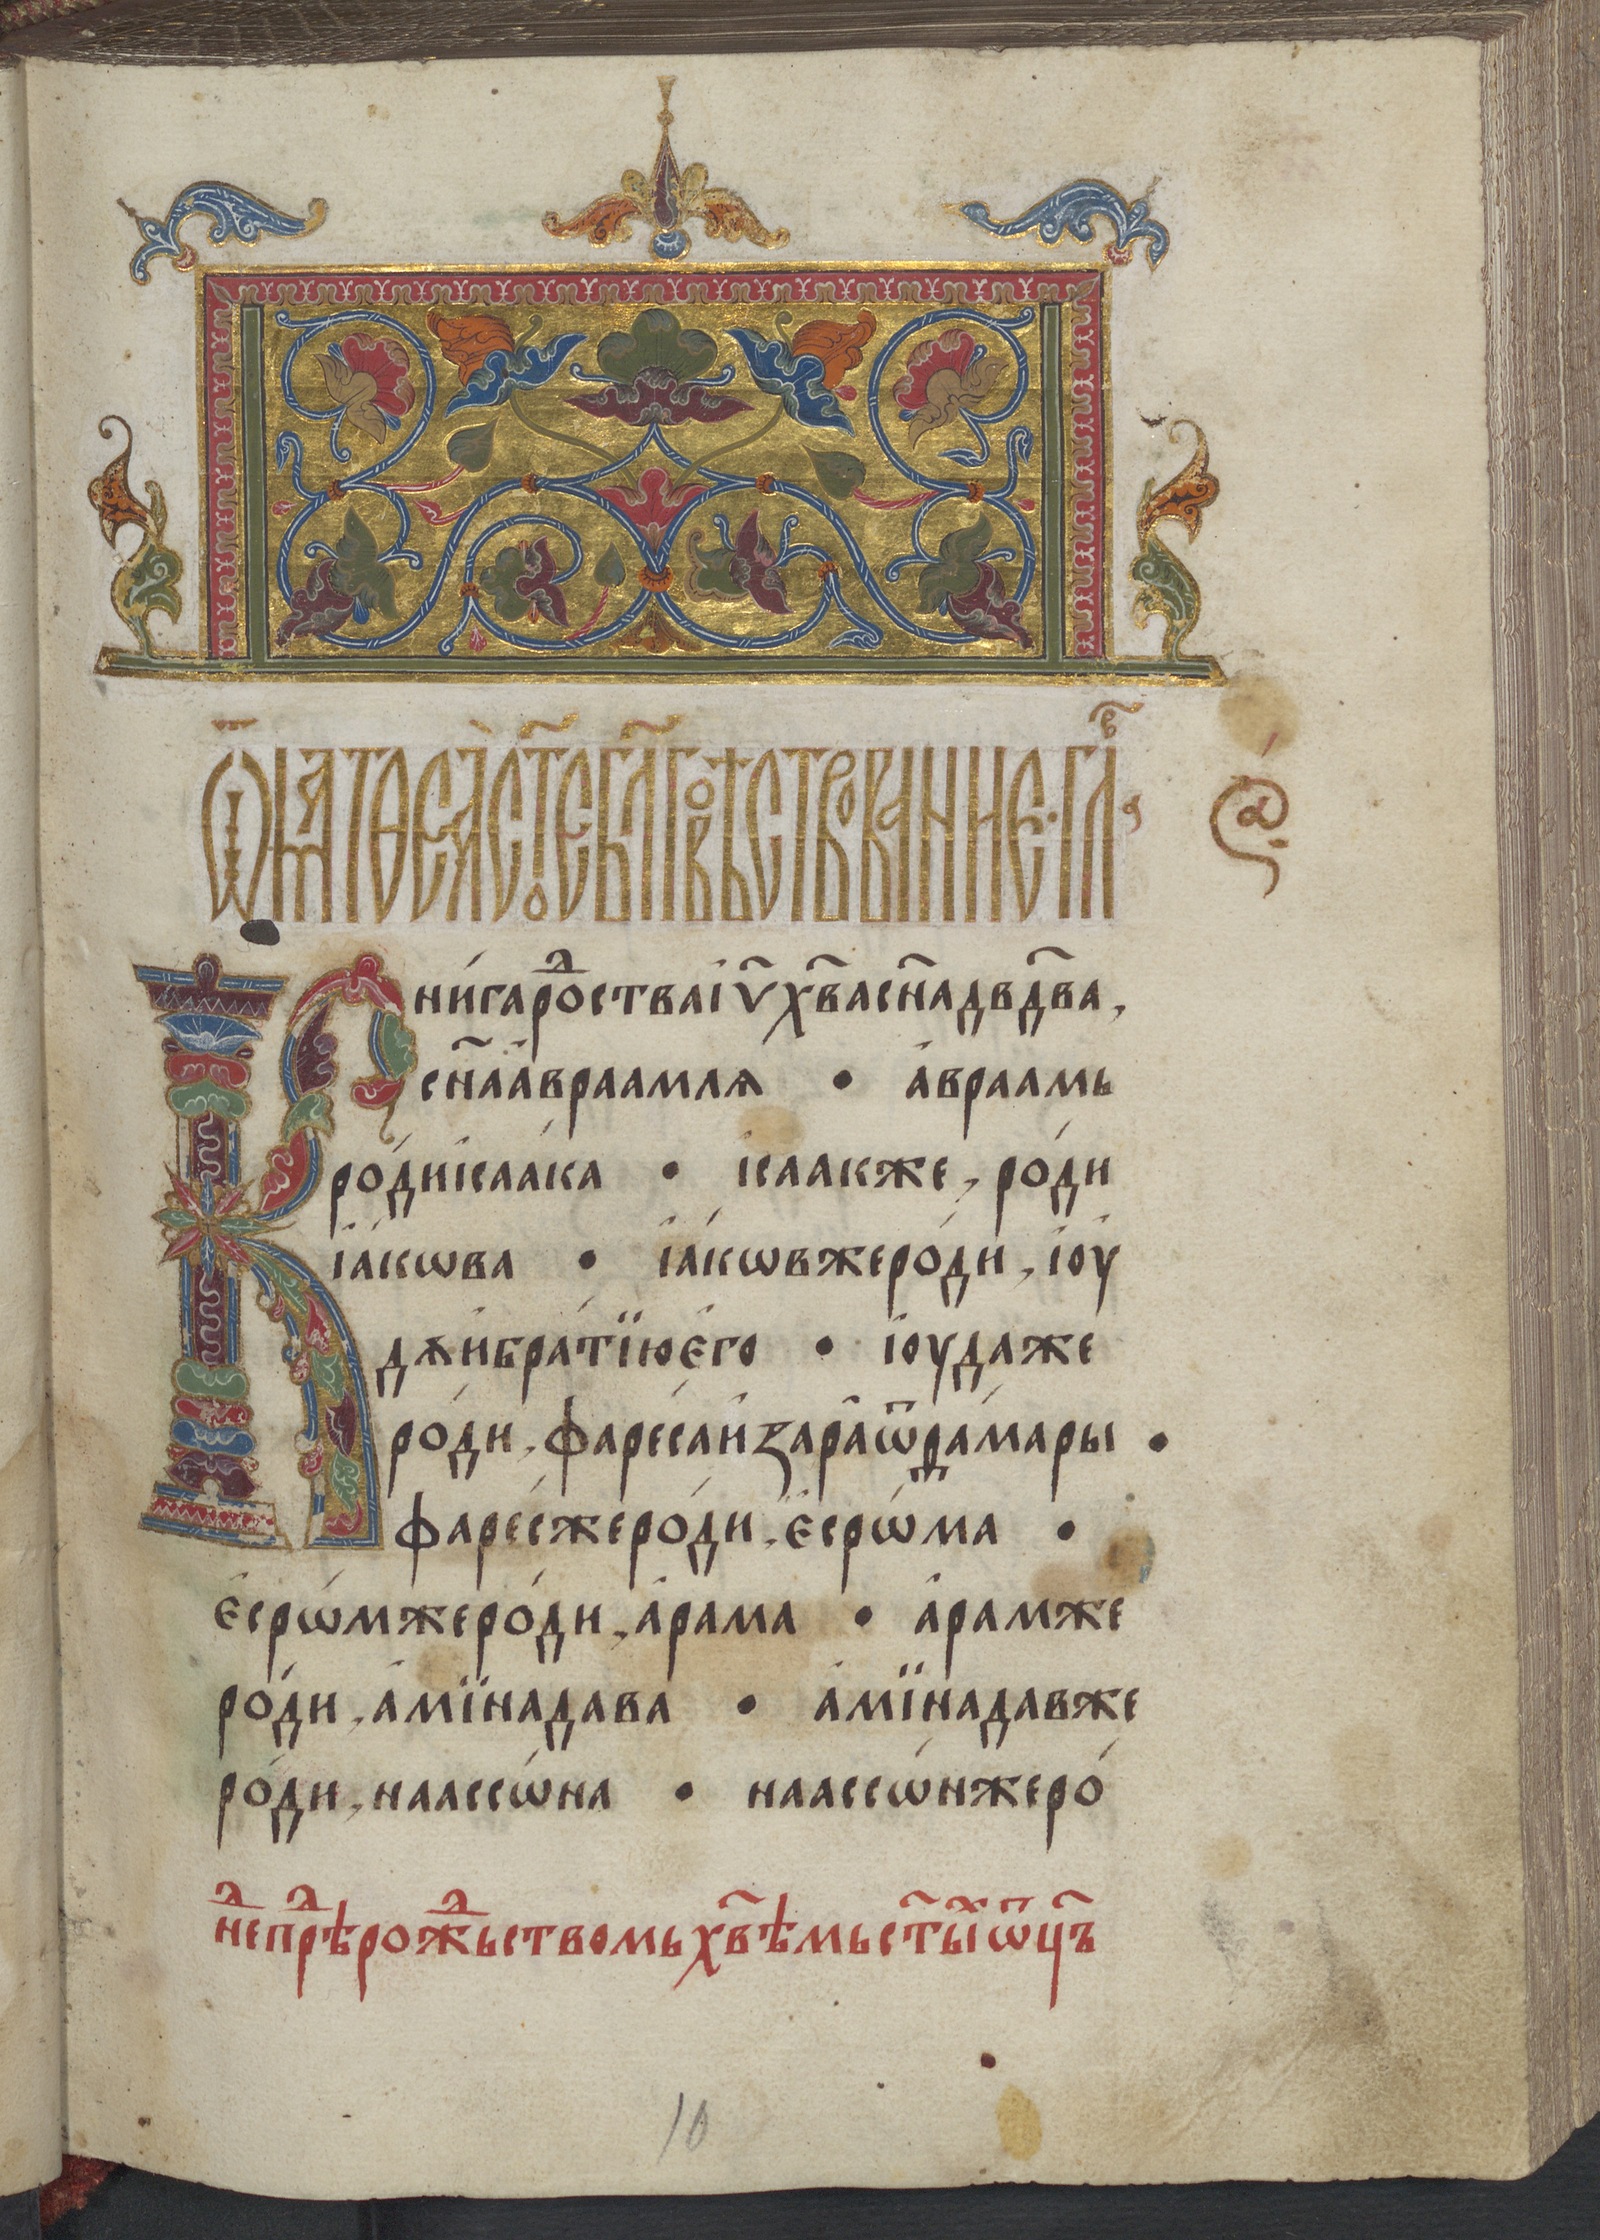 Ѿ маттеа ст҃ое бл҃говѣствованиие · гл҃в а҃
а҃
Кни́га рⷪ҇ства і҆ѵ҃ хв҃а сн҃а дв҃два,
сн҃а а҆враамлѧ • а҆враамь
ро́ди і҆саа́ка • і҆саакже, ро́ди
і҆а́кѡва • і҆а́кѡвже ро́ди, і҆оу
дѫ и҆ бра́тїю е҆го • і҆оудаже
ро́ди, фареса и҆ зара ѿ ѳа́мары •
фаре́сже ро́ди, е҆срѡ́ма •
е҆срѡ́мже ро́ди, а҆рама • а҆рамже
ро́ди, а҆мїнадава • а҆мїнадавже
ро́ди, наассѡ́на • наассѡ́нже ро́
нⷣе прⷣѣ рожⷣьствомь хв҃ѣмь ст҃ыⷯ ѿц҃ъ
10